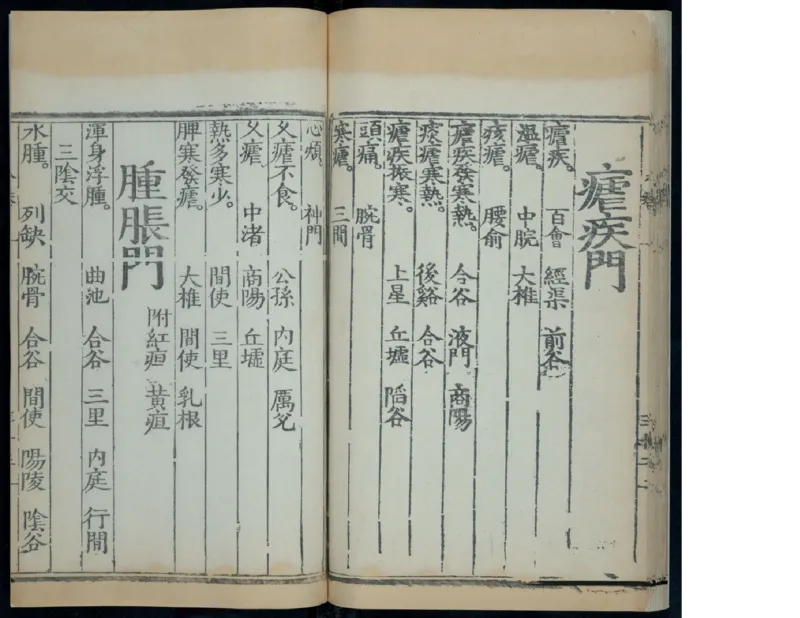 瘧疾門
瘧疾。 百會 經渠 前谷
溫瘧。 中脘 大椎
痎瘧。 腰俞
瘧疾發寒熱。 合谷 液門 商陽
痰瘧寒熱。 後谿 合谷
瘧疾振寒。 上星 丘墟 陷谷
頭痛。 腕骨
寒瘧。 三間
心煩。 神門
久瘧不食。 公孫 內庭 厲兌
久瘧。 中渚 商陽 丘墟
熱多寒少。 間使 三里
脾寒發瘧。 大椎 間使 乳根
腫脹門 附紅疸 黃疸
渾身浮腫。 曲池 合谷 三里 內庭 行間
三陰交
水腫。 列缺 腕骨 合谷 間使 陽陵 陰谷